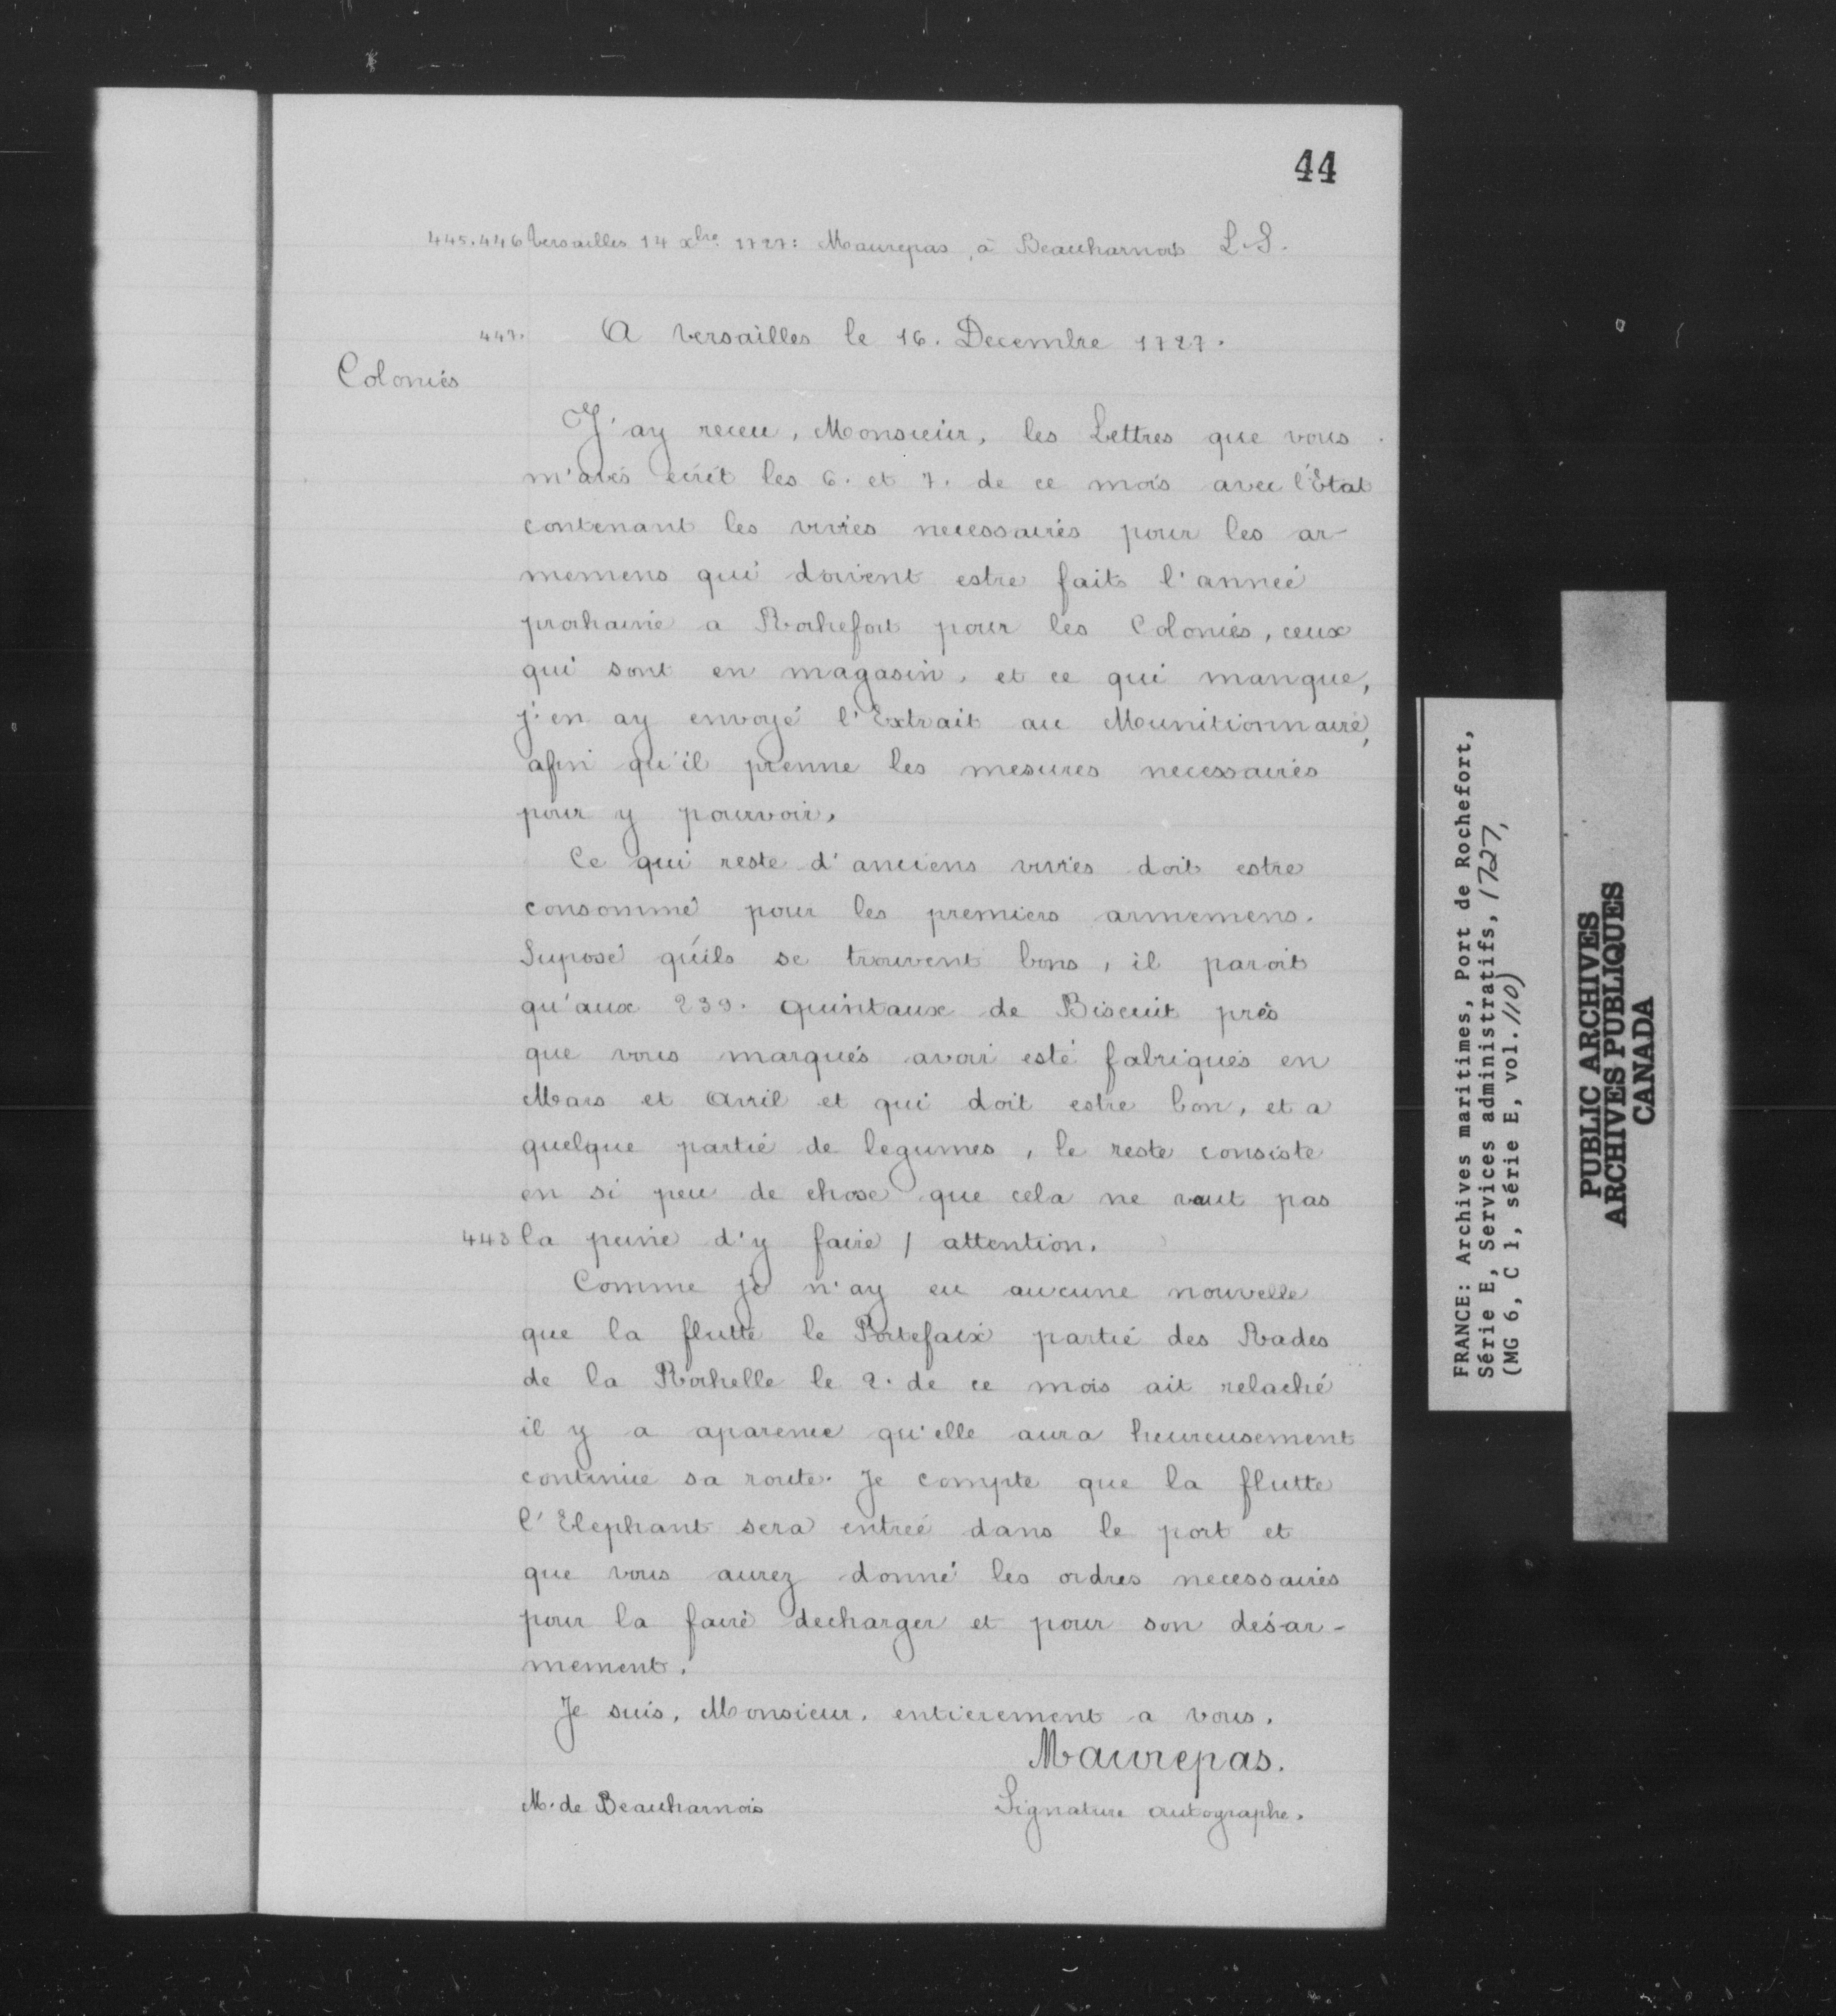 44
445.446 Versailles 14 xbre 1727: Maurepas, à Beauharnois L.S.
447. A Versailles le 16. Decembre 1727.
Colonies
J'ay receu, Monsieur, les Lettres que vous
m'avés ecrit les 6. et 7. de ce mois avec l'Etat
contenant les vivres necessaires pour les ar-
memens qui doivent estre faits l'année
prochaine a Rochefort pour les Colonies, ceux
qui sont en magasin, et ce qui manque,
j'en ay envoyé l'Extrait au Munitionnaire,
afin qu'il prenne les mesures necessaires
pour y pourvoir.
Ce qui reste d'anciens vivres doit estre
consommé pour les premiers armemens.
Suposé qu'ils se trouvent bons, il paroit
qu'aux 239. quintaux de Biscuit prés
que vous marqués avoir esté fabriqués en
Mars et Avril et qui doit estre bon, et a
quelque partie de legumes, le reste consiste
en si peu de chose que cela ne vaut pas
448 la peine d'y faire / attention.
Comme je n'ay eu aucune nouvelle
que la flutte le Portefaix partie des Rades
de la Rochelle le 2. de ce mois ait relaché
il y a aparence qu'elle aura heureusement
continué sa route. Je compte que la flutte
l'Elephant sera entrée dans le port et
que vous aurez donné les ordres necessaires
pour la faire decharger et pour son désar-
mement.
Je suis, Monsieur, entierement a vous.
Maurepas.
M. de Beauharnois Signature autographe.
FRANCE: Archives maritimes, Port de Rochefort,
Série E, Services administratifs, 1727,
(MG 6, C 1, série E, vol. 110)
PUBLIC ARCHIVES
ARCHIVES PUBLIQUES
CANADA